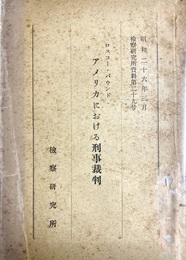 昭和二十六年三月
検察研究所資料第二十九号
ロスコー・パウンド
アメリカにおける刑事裁判
検察研究所